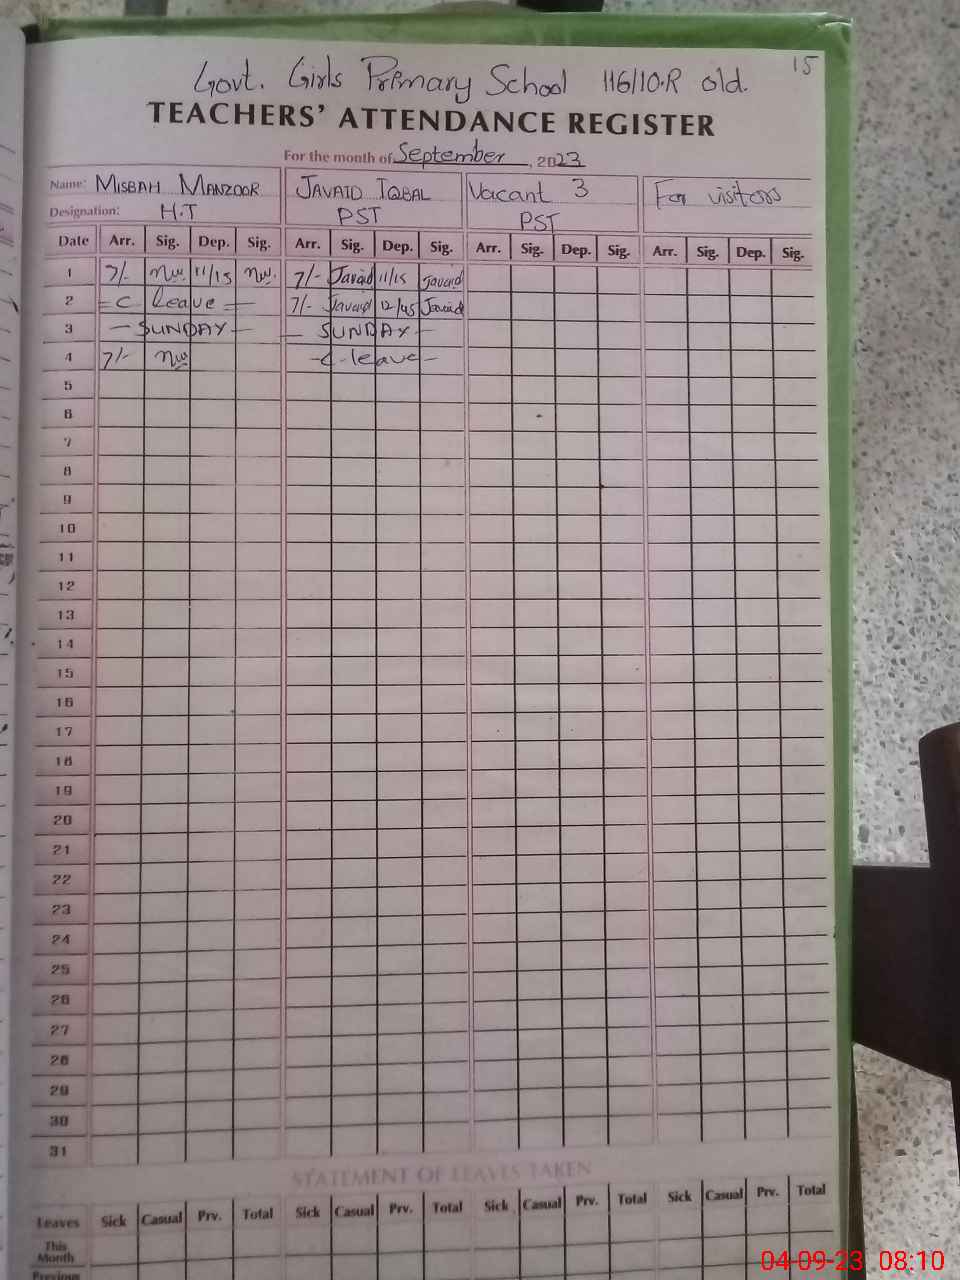 15
Govt. Girls Primary School 116/10.R old.
TEACHERS' ATTENDANCE REGISTER
For the month of September, 2023
Name: MISBAH MANZOOR JAVAID IQBAL Vacant 3 For visitors
Designation: H.T PST PST
Date Arr. Sig. Dep. Sig. Arr. Sig. Dep. Sig. Arr. Sig. Dep. Sig. Arr. Sig. Dep. Sig.
1 7/- 11/15 7/- Javaid 11/15 Javaid
2 = C Leave = 7/- Javaid 12/45 Javaid
3 - SUNDAY - - SUNDAY -
4 7/- - C - leave -
5
6
7
8
9
10
11
12
13
14
15
16
17
18
19
20
21
22
23
24
25
26
27
28
29
30
31
STATEMENT OF LEAVES TAKEN
Leaves Sick Casual Prv. Total Sick Casual Prv. Total Sick Casual Prv. Total Sick Casual Prv. Total
This
Month
Previous
04-09-23 08:10